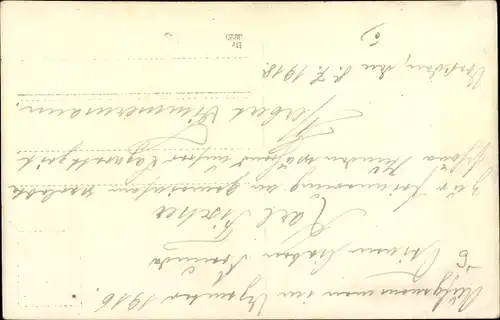 Potsdam, den 8.7.1918.
Zur Erinnerung an gemeinsam verlebte
schöne Stunden während unserer Lazarettzeit
Herbert Zimmermann.
Seinem lieben Freunde
Karl Fischer
Aufgenommen im Dezember 1916.